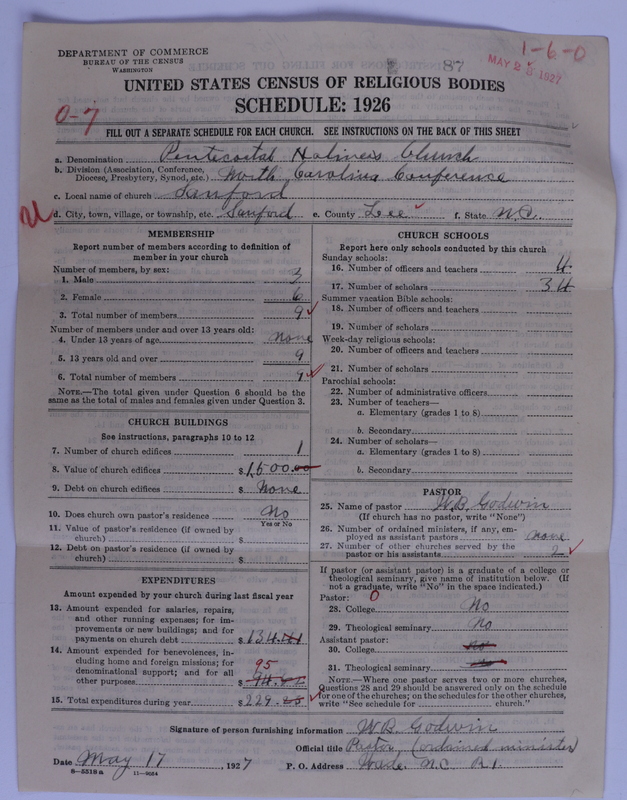 DEPARTMENT OF COMMERCE
BUREAU OF THE CENSUS
WASHINGTON
87
MAY 25 1927
1-6-0
UNITED STATES CENSUS OF RELIGIOUS BODIES
SCHEDULE: 1926
0-7
FILL OUT A SEPARATE SCHEDULE FOR EACH CHURCH. SEE INSTRUCTIONS ON THE BACK OF THIS SHEET
a. Denomination Pentecostal Holiness Church
b. Division (Association, Conference, Diocese, Presbytery, Synod, etc.) North Carolina Conference
c. Local name of church Sanford
d. City, town, village, or township, etc. Sanford e. County Lee f. State N.C.
MEMBERSHIP
Report number of members according to definition of
member in your church
Number of members, by sex:
1. Male 3
2. Female 6
3. Total number of members 9
Number of members under and over 13 years old:
4. Under 13 years of age None
5. 13 years old and over 9
6. Total number of members 9
NOTE.—The total given under Question 6 should be
same as the total of males and females given under Question 3.
CHURCH BUILDINGS
See instructions, paragraphs 10 to 12
7. Number of church edifices 1
8. Value of church edifices $1,500.00
9. Debt on church edifices $ None
10. Does church own pastor's residence No
Yes or No
11. Value of pastor's residence (if owned by
church) $
12. Debt on pastor's residence (if owned by
church) $
EXPENDITURES
Amount expended by your church during last fiscal year
13. Amount expended for salaries, repairs,
and other running expenses; for im-
provements or new buildings; and for
payments on church debt $134.
14. Amount expended for benevolences, in-
cluding home and foreign missions; for
denominational support; and for all
other purposes $ 95
15. Total expenditures during year $229.
CHURCH SCHOOLS
Report here only schools conducted by this church
Sunday schools:
16. Number of officers and teachers 4
17. Number of scholars 34
Summer vacation Bible schools:
18. Number of officers and teachers
19. Number of scholars
Week-day religious schools:
20. Number of officers and teachers
21. Number of scholars
Parochial schools:
22. Number of administrative officers
23. Number of teachers—
a. Elementary (grades 1 to 8)
b. Secondary
24. Number of scholars—
a. Elementary (grades 1 to 8)
b. Secondary
PASTOR
25. Name of pastor W.B. Godwin
(If church has no pastor, write "None")
26. Number of ordained ministers, if any, em-
ployed as assistant pastors none
27. Number of other churches served by the
pastor or his assistants 2
If pastor (or assistant pastor) is a graduate of a college or
theological seminary, give name of institution below. (If
not a graduate, write "No" in the space indicated.)
Pastor: 0
28. College No
29. Theological seminary No
Assistant pastor:
30. College No
31. Theological seminary No
NOTE.—Where one pastor serves two or more churches,
Questions 28 and 29 should be answered only on the schedule
for one of the churches; on the schedules for the other churches,
write "See schedule for church."
Signature of person furnishing information W.B. Godwin
Official title Pastor, (ordained minister)
Date May 17, 1927 P. O. Address Wade, N.C. R1.
8-5518a 11-9634